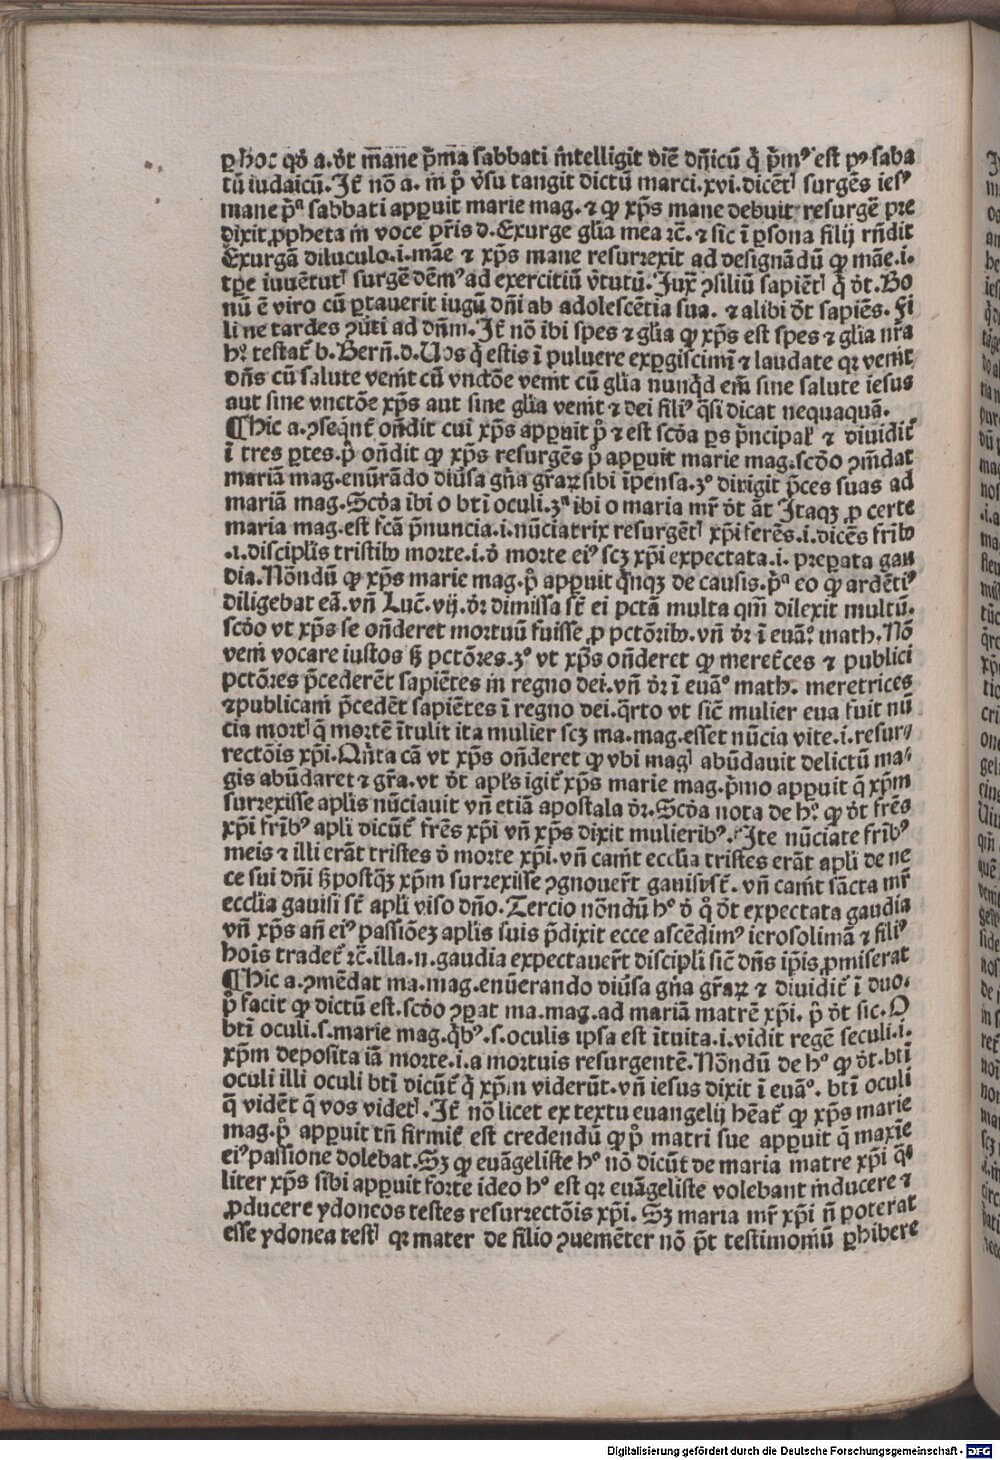 ꝑ hoc qđ a. dt̄ mane p̄ma sabbati intelligit diē dn̄icū q̄ p̄mꝰ est pꝰ saba
tū iudaicū. Itē nō a. in p̊ v̄su tangit dictū marci. xvi. dicētꝭ surgēs iesꝰ
mane p̄ᵃ sabbati apꝑuit marie mag. ⁊ ꝙ xp̄s mane debuit resurgē̄ pre
dixit ꝓpheta in voce pr̄is d. Exurge gl̄ia mea ⁊c̄. ⁊ sic ī ꝑsona filij rn̄dit
Exurgā diluculo .i. māe ⁊ xp̄s mane resurrexit ad designādū ꝙ māe .i.
tꝑe iuuētutꝭ surgē̄ dēmꝰ ad exercitiū v̄tutū. Iuxͣ ꝯsiliū sapiētꝭ q̄ dt̄. Bo
nū ē viro cū ꝑtauerit iugū dn̄i ab adolescētia sua. ⁊ alibi dt̄ sapiēs. Fi
li ne tardes ꝯuti ad dn̄m. Itē nō ibi spes ⁊ gl̄ia ꝙ xp̄s est spes ⁊ gl̄ia nr̄a
hꝰ testaṫ b. Bern̄. d. Uos q̄ estis ī puluere expgiscimī ⁊ laudate qꝛ venit
dn̄s cū salute venit cū vnctōe venit cū gl̄ia nunq̄d em̄ sine salute iesus
aut sine vnctōe xp̄s aut sine gl̄ia venit ⁊ dei filiꝰ q̄si dicat nequaquā.
¶ Hic a. ꝯseqn̄ṫ on̄dit cui xp̄s apꝑuit p̊ ⁊ est scd̄a ꝑs p̄ncipal̄ ⁊ diuidiṫ
ī tres ꝑtes. p̊ on̄dit ꝙ xp̄s resurgēs p̊ apꝑuit marie mag. scd̄o ꝯm̄dat
mariā mag. enūrādo diūsa gn̄a gr̄aꝝ sibi īpensa. 3ᵒ dirigit p̄ces suas ad
mariā mag. Scd̄a ibi o btī oculi. 3ᵃ ibi o maria mr̄ dt̄ āt Itaqꝫ ꝓ certe
maria mag. est fc̄ā p̄nuncia .i. nūciatrix resurgētꝭ xp̄i ferēs .i. dicēs frībꝫ
.i. discipl̄is tristibꝫ morte .i. d̄ morte eiꝰ scꝫ xp̄i expectata .i. preparata gau
dia. Nōndū ꝙ xp̄s marie mag. p̊ apꝑuit q̄nqꝫ de causis. p̄ᵃ eo ꝙ ardētiꝰ
diligebat eā. vn̄ Luc̄. vij. dꝛ̄ dimissa st̄ ei pctā multa qm̄ dilexit multū.
scd̄o vt xp̄s se on̄deret mortuū fuisse ꝓ pctōribꝫ. vn̄ dꝛ̄ ī euāᵒ math. Nō
veni vocare iustos sꝫ pctōres. 3ᵒ vt xp̄s on̄deret ꝙ meret̄ces ⁊ publici
pctōres p̄cederēt sapiētes in regno dei. vn̄ dꝛ̄ ī euāᵒ math. meretrices
⁊publicani p̄cedēt sapiētes ī regno dei. q̄rto vt sic̄ mulier eua fuit nū
cia mortꝭ q̄ mortē ītulit ita mulier scꝫ ma. mag. esset nūcia vite .i. resur⸗
rectōis xp̄i. Qn̄ta cā vt xp̄s on̄deret ꝙ vbi magꝭ abūdauit delictū ma⸗
gis abūdaret ⁊ gr̄a. vt dt̄ apl̄s igiṫ xp̄s marie mag. p̄mo apꝑuit q̄ xp̄m
surrexisse apl̄is nūciauit vn̄ etiā apostala dꝛ̄. Scd̄a nota de hꝰ ꝙ dt̄ frēs
xp̄i frībꝰ apl̄i dicūṫ frēs xp̄i vn̄ xp̄s dixit mulieribꝰ. Ite nūciate frībꝰ
meis ⁊ illi erāt tristes d̄ morte xp̄i. vn̄ canit eccl̄ia tristes erāt apl̄i de ne
ce sui dn̄i sꝫ postq̄ꝫ xp̄m surrexisse ꝯgnouer̄t gauisi st̄. vn̄ canit sācta mr̄
eccl̄ia gauisi st̄ apl̄i viso dn̄o. Tercio nōndū hꝰ d̄ q̊ dt̄ expectata gaudia
vn̄ xp̄s an̄ eiꝰ passiōeꝫ apl̄is suis p̄dixit ecce ascēdimꝰ ierosolimā ⁊ filiꝰ
hoīs tradeṫ ⁊c̄. illa .n. gaudia expectauer̄t discipl̄i sic̄ dn̄s ip̄is ꝓmiserat
¶ Hic a. ꝯmēdat ma. mag. enūerando diūsa gn̄a gr̄aꝝ ⁊ diuidiṫ ī duo.
p̊ facit ꝙ dictū est. scd̄o ꝯꝑat ma. mag. ad mariā matrē xp̄i. p̊ dt̄ sic. O
btī oculi .s. marie mag. q̄bꝰ .s. oculis ipsa est ītuita .i. vidit regē seculi .i.
xp̄m deposita iā morte .i. a mortuis resurgentē. Nōndū de hꝰ ꝙ dt̄. btī
oculi illi oculi btī dicūṫ q̄ xp̄m viderūt. vn̄ iesus dixit ī euāᵒ. btī oculi
q̄ vidēt q̄ vos videtꝭ. Itē nō licet ex textu euangelij hēaṫ ꝙ xp̄s marie
mag. p̊ apꝑuit tn̄ firmiṫ est credendū ꝙ p̊ matri sue apꝑuit q̄ maxīe
eiꝰ passione dolebat. Sꝫ ꝙ euāgeliste hꝰ nō dicūt de maria matre xp̄i q̄ꝰ
liter xp̄s sibi apꝑuit forte ideo hꝰ est qꝛ euāgeliste volebant inducere ⁊
ꝓducere ydoneos testes resurrectōis xp̄i. Sꝫ maria mr̄ xp̄i n̄ poterat
esse ydonea testꝭ qꝛ mater de filio ꝯueniēter nō p̄t testimoniū ꝑhibere
Digitalisierung gefördert durch die Deutsche Forschungsgemeinschaft - DFG